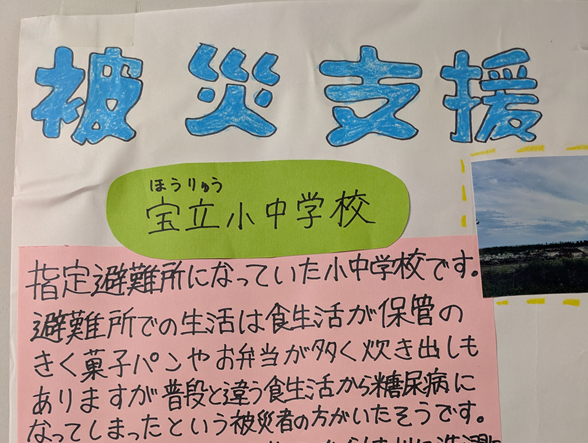 被災支援
ほうりゅう
宝立小中学校
指定避難所になっていた小中学校です。
避難所での生活は食生活が保管の
きく菓子パンやお弁当が多く炊き出しも
ありますが普段と違う食生活から糖尿病に
なってしまったという被災者の方がいたそうです。